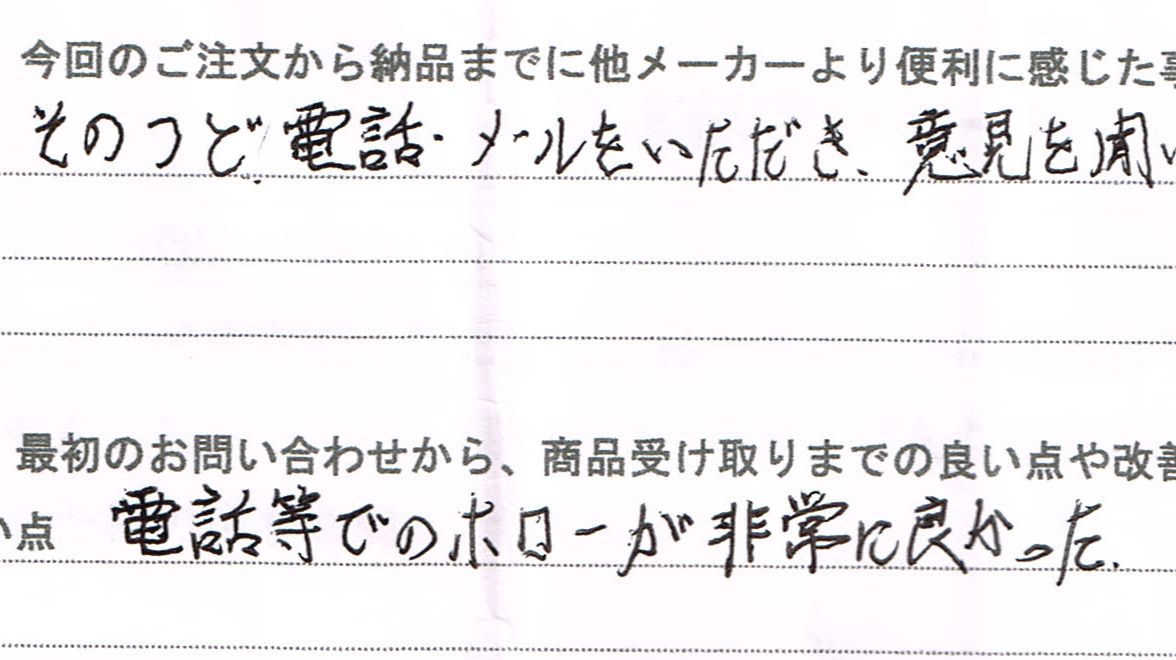 今回のご注文から納品までに他メーカーより便利に感じた事
そのつど、電話・メールをいただき、意見を聞い
最初のお問い合わせから、商品受け取りまでの良い点や改善
い点 電話等でのホローが非常に良かった.